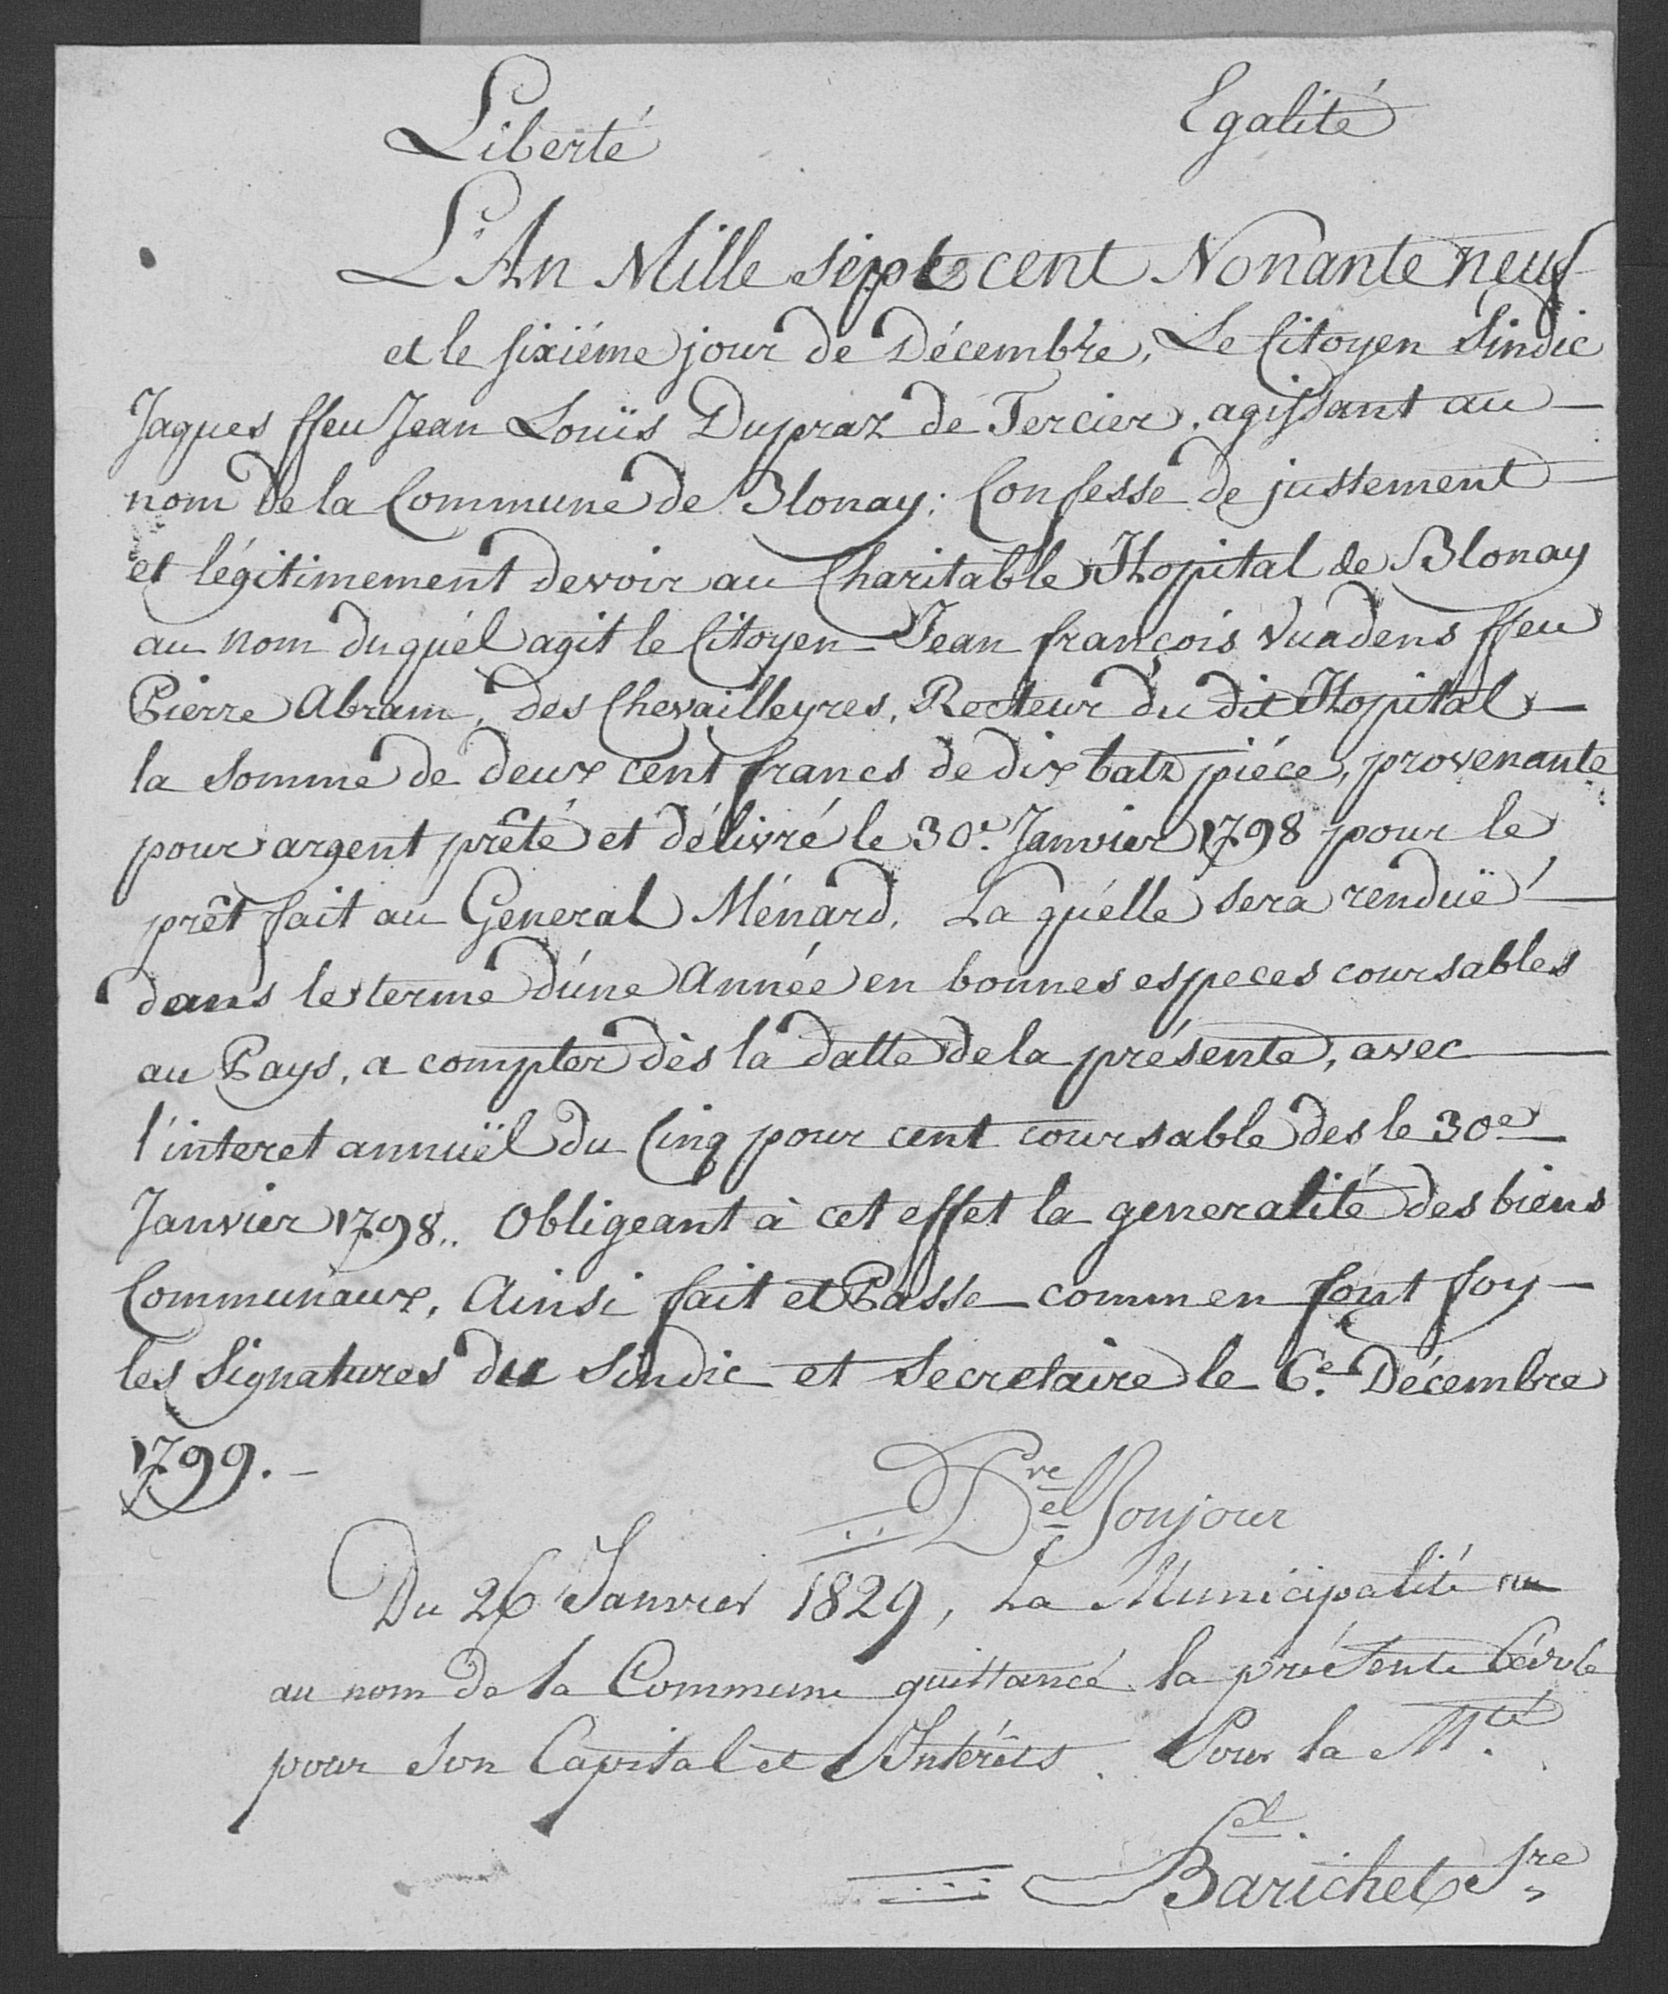 Liberté Egalité
L'An Mille sept cent Nonante neuf
et le sixiéme jour de Décembre, Le Citoyen Sindic
Jaques ffeu Jean Louïs Dupraz de Tercier, agissant au
nom de la Commune de Blonay; Confesse de justement
et légitimement devoir au Charitable Hopital de Blonay
au nom duquel agit le Citoyen Jean françois Vuadens ffeu
Pierre Abram, des Chevailleyres, Recteur du dit Hopital
la Somme de deux cent francs de dix batz piéce, provenante
pour argent prêté et délivré le 30e. Janvier 1798 pour le
prêt fait au General Ménard. La quélle sera renduë
dans le terme d'une Année en bonnes especes coursables
au Pays, a compter dès la datte de la présente, avec
l'interet annuël du Cinq pour cent coursable des le 30e
Janvier 1798.. Obligeant à cet effet la generalité des biens
Communaux, Ainsi fait et Passe comm en font foy
les Signatures du Sindic et Secretaire le 6e. Décembre
1799.
Du 26 Janvier 1829, La Municipalité
au nom de la Commune quittancé la présente Cédule
pour son Capital et Intérêts. Pour la Mté
Barichet Sre